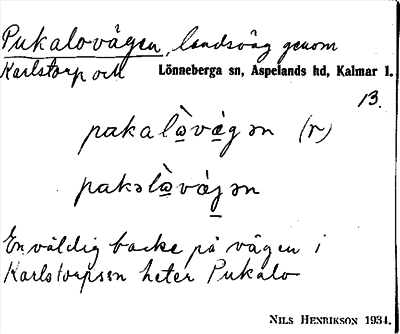 Pukalovägen, landsväg genom
Karlstorp och Lönneberga sn, Aspelands hd, Kalmar l.
13.
pakalə̀vágən (r)
pakələ̀vágən
En väldig backe på vägen i
Karlstorpssn heter Pukalo
NILS HENRIKSON 1934.